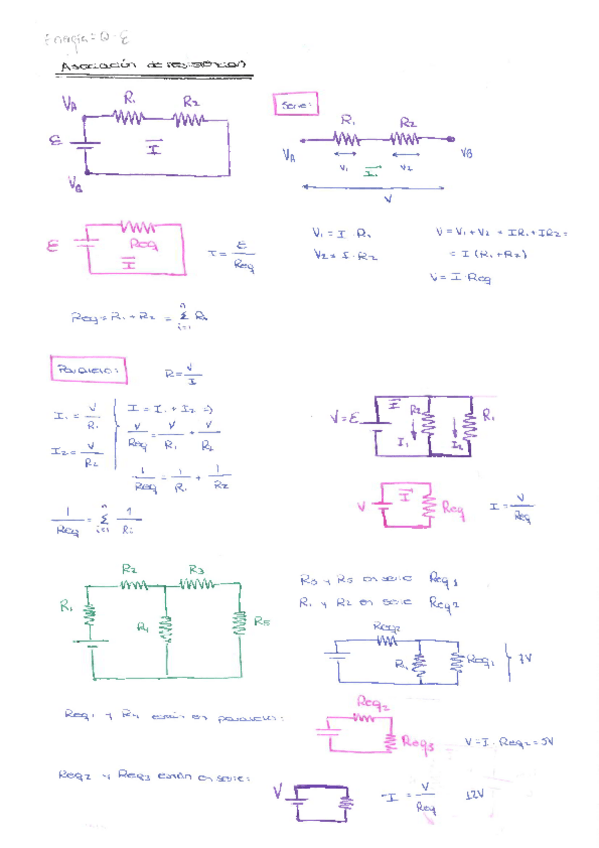 Energía = Q · Ɛ
Asociación de resistencias
Serie:
VA R₁ R₂
Ɛ I
VB
R₁ R₂
VA VB
V₁ I V₂
V
Ɛ Req I
I = Ɛ/Req
V₁ = I · R₁
V₂ = I · R₂
V = V₁ + V₂ = IR₁ + IR₂ =
= I (R₁ + R₂)
V = I · Req
Req = R₁ + R₂ = Σ Ri
n
i=1
Paralelo:
R = V/I
I₁ = V/R₁
I₂ = V/R₂
I = I₁ + I₂ =>
V/Req = V/R₁ + V/R₂
1/Req = 1/R₁ + 1/R₂
1/Req = Σ 1/Ri
n
i=1
V = Ɛ I R₂ R₁
I₁ I₂
V I Req
I = V/Req
R₂ R₃
R₁ R₄ R₅
R₃ y R₅ en serie Req₁
R₁ y R₂ en serie Req₂
Req₂
R₄ Req₁ 7V
Req₁ y R₄ están en paralelo:
Req₂
Req₃
V = I · Req₂ = 5V
Req₂ y Req₃ están en serie:
V
I = V/Req 12V